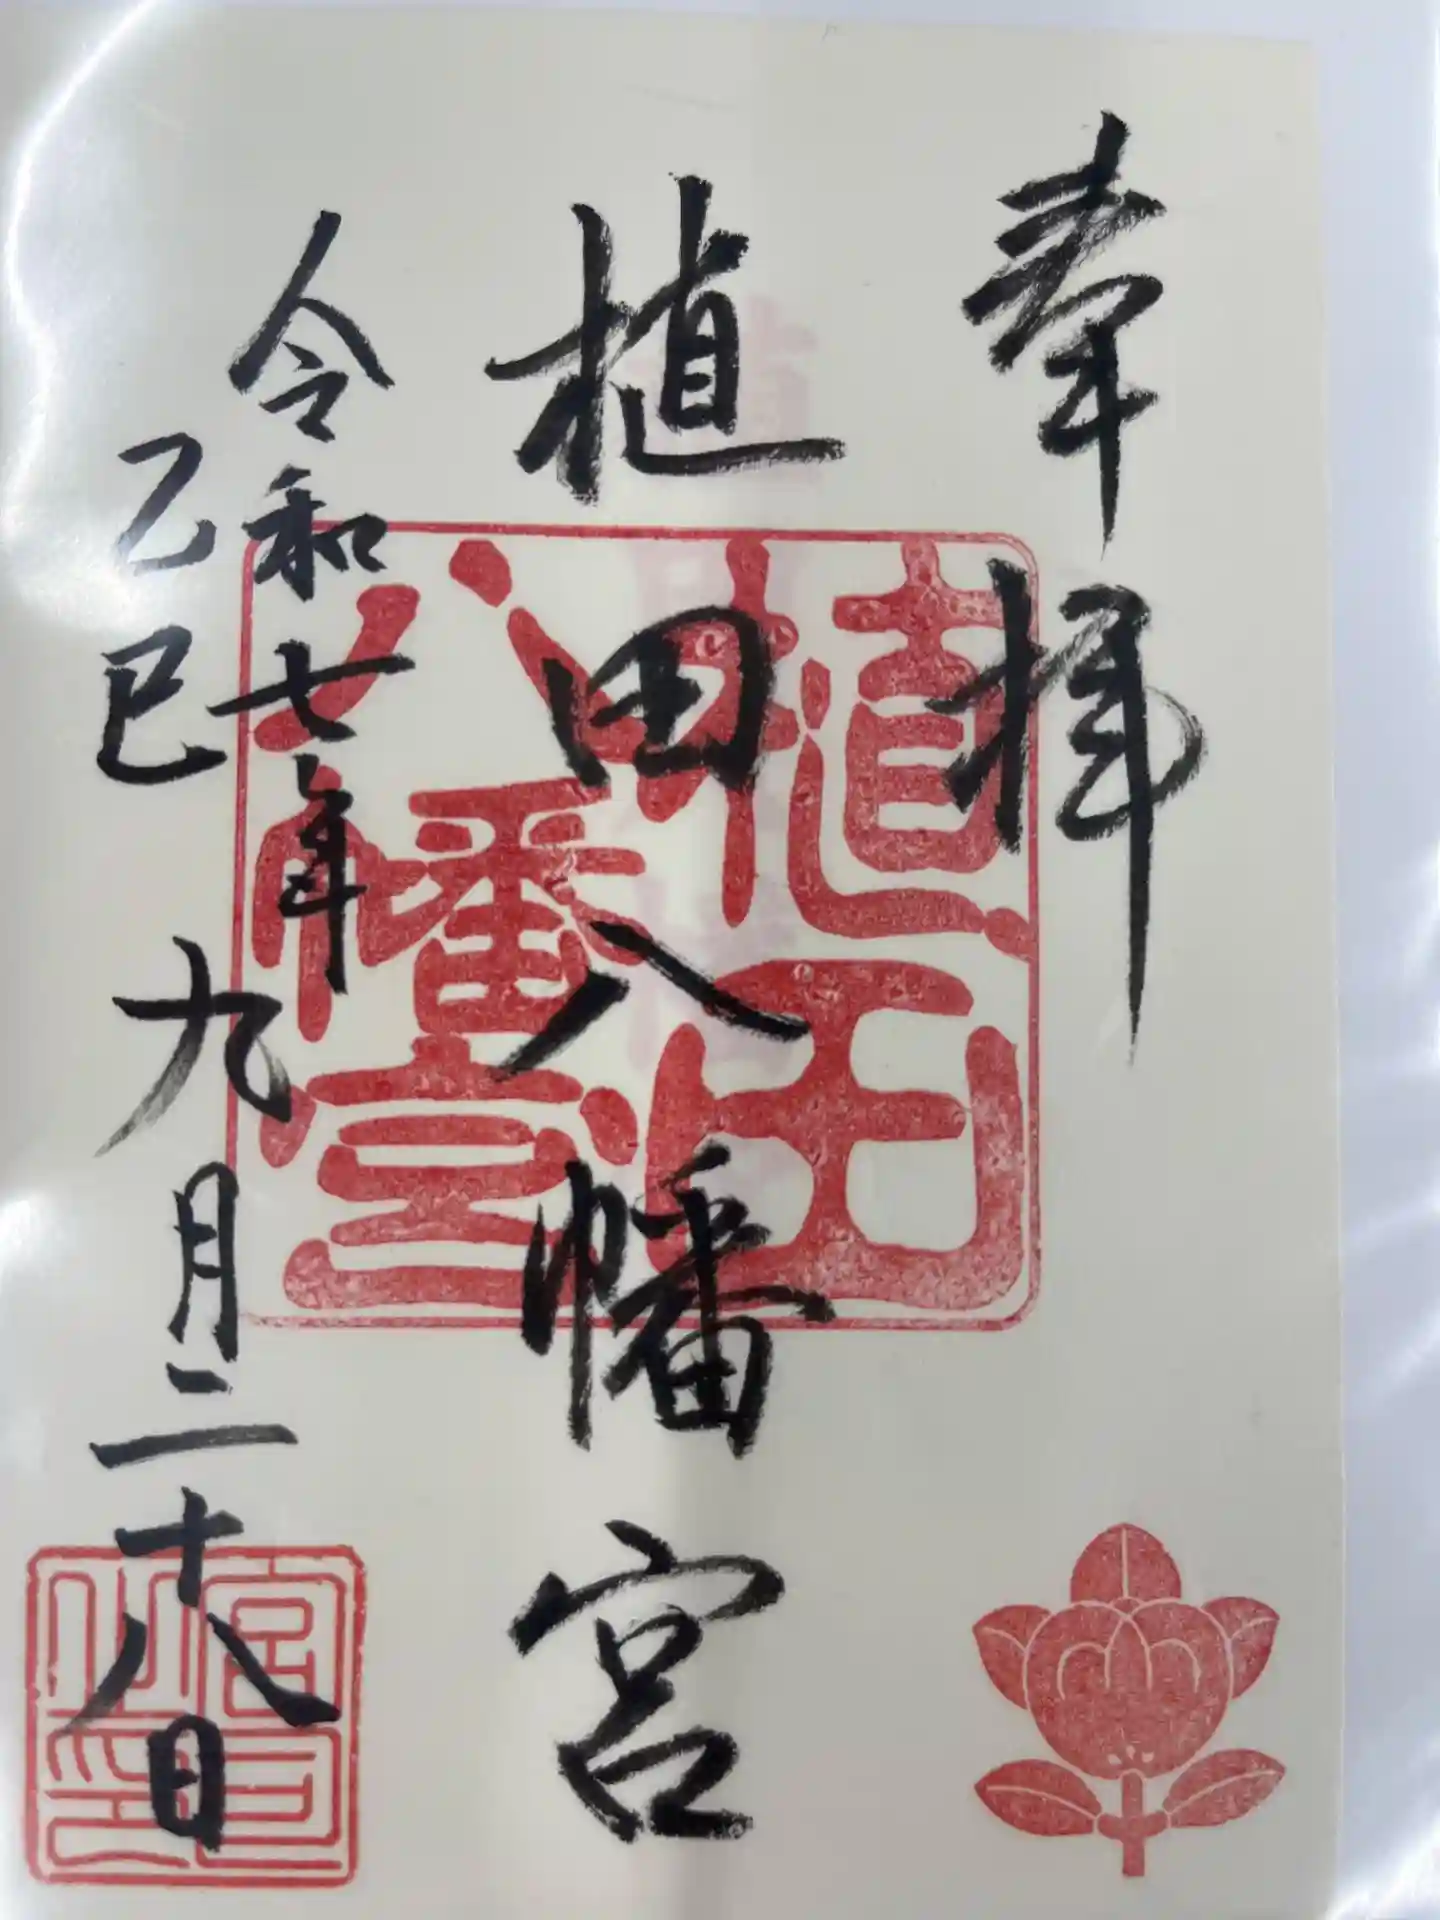 奉拝
植田八幡宮
令和七年
乙巳
九月二十八日
植田
八幡宮
宮司之印